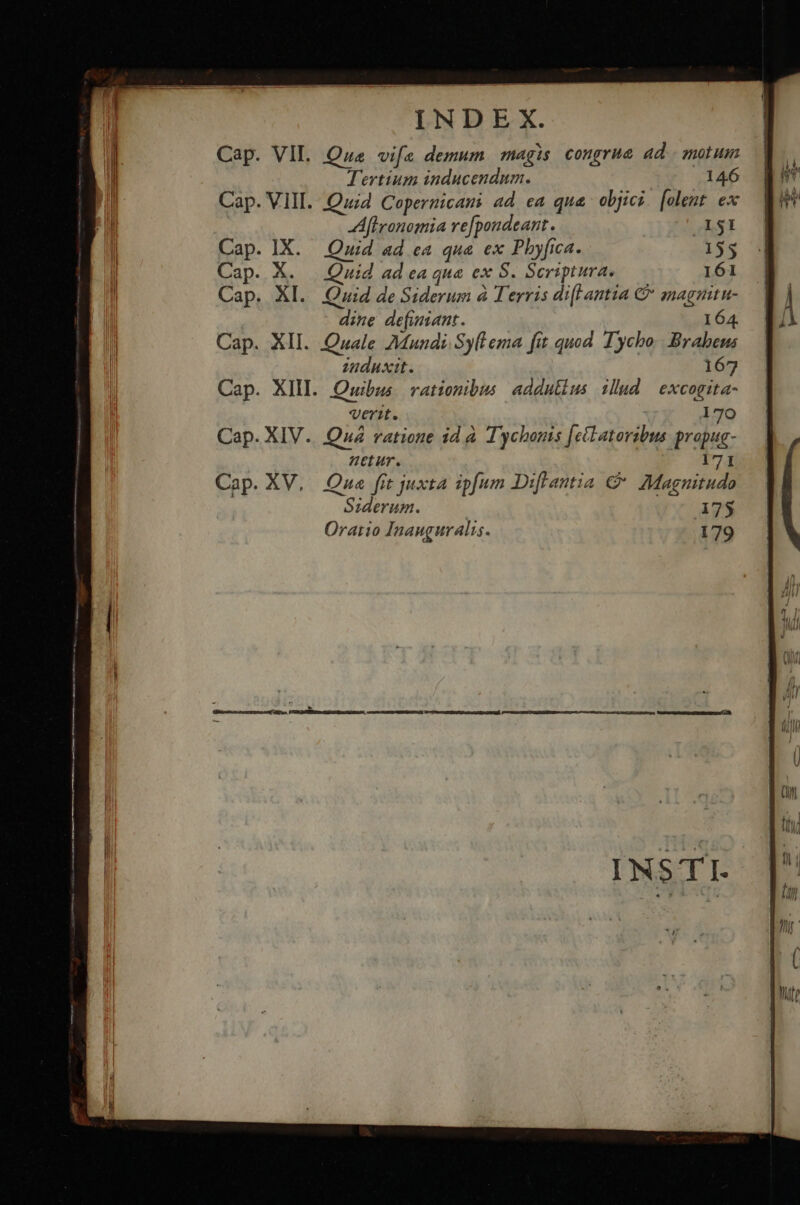 INDEX.
Cap. VII. Quæ visæ demum magis congruæ ad motum
Tertium inducendum. 146
Cap. VIII. Quid Copernicani ad ea quæ objici solent ex
Astronomia respondeant. 151
Cap. IX. Quid ad ea quæ ex Physica. 155
Cap. X. Quid ad ea quæ ex S. Scriptura. 161
Cap. XI. Quid de Siderum à Terris distantia & magnitu-
dine definiant. 164
Cap. XII. Quale Mundi Systema sit quod Tycho Braheus
induxit. 167
Cap. XIII. Quibus rationibus adductus illud excogita-
verit. 170
Cap. XIV. Quâ ratione id à Tychonis sectatoribus propug-
netur. 171
Cap. XV. Quæ sit juxta ipsum Distantia & Magnitudo
Siderum. 175
Oratio Inauguralis. 179
INSTI-